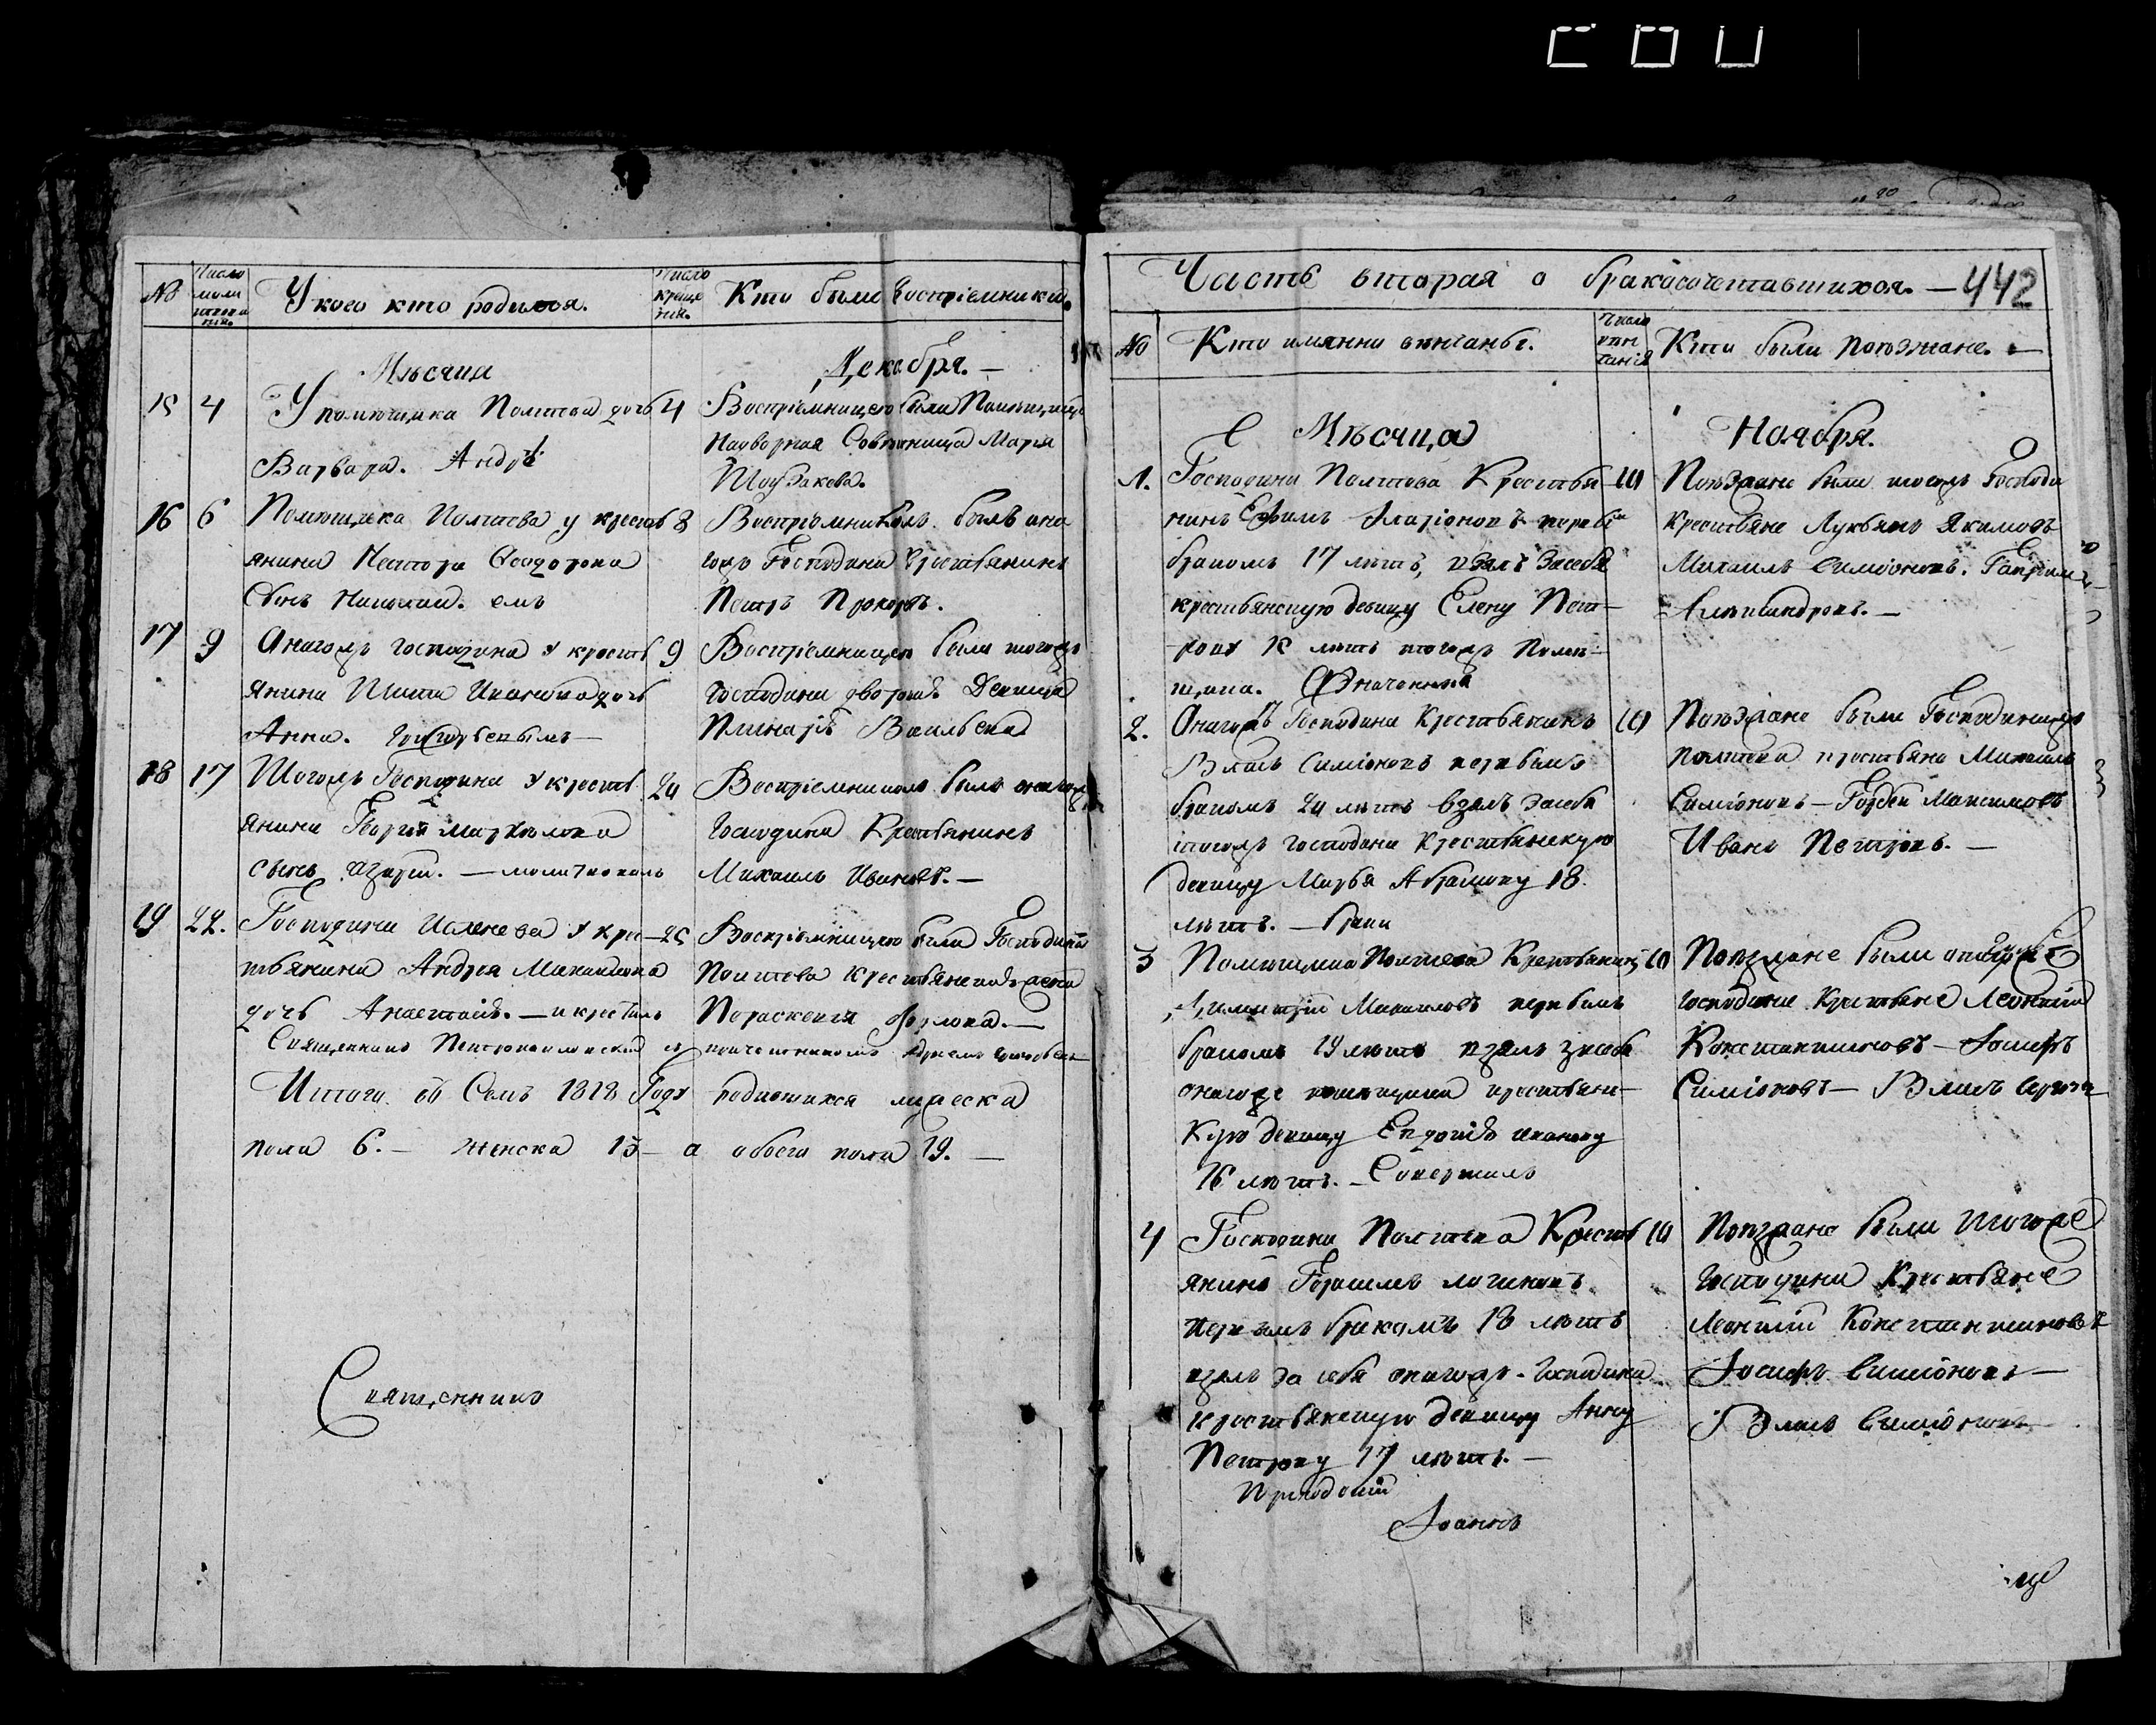 №
Число молитвованія.
У кого кто родился.
Число крещенія.
Кто были воспріемники.
Мѣсяца
Декабря. —
15 4 У помѣщика Полтева дочь 4
Варвара. Андрѣ
Воспріемницею была Помѣщица
Надворная Совѣтница Марія
16 6 Помѣщика Полтева у кресть 8
янина Нестора Ѳеодорова
Сынъ
Воспріемникомъ былъ она
годъ Господина Крестьянинъ
Петръ
17 9 Онагожъ господина у кресть 9
янина Иванова дочь
Анна.
Воспріемницею была тогожъ
Господина дѣвица
18 17 Тогожъ Господина у кресть 20
янина Георгія
сынъ
Воспріемникомъ былъ онагожъ
Господина Крестьянинъ
Михаилъ Ивановъ. —
19 22. Господина у крес— 25
тьянина Андрея Михайлова
дочь Анастасія. — и крестилъ
Священникъ
Воспріемницею была Господина
Полтева крестьянская жена
Параскевия
Итого въ Семъ 1818 Году родившихся мужеска
пола 6. — женска 13 — а обоего пола 19. —
Священникъ
Часть вторая о бракосочетавшихся. — 442
№
Кто имянно вѣнчаны.
Число вѣнчанія
Кто были поѣзжане. —
Мѣсяца
Ноября.
1. Господина Полтева Крестья 10
нинъ Ефимъ Иларіоновъ первы
бракомъ 17 лѣтъ, взялъ засебя
крестьянскую девицу Елену Пет—
рову 15 лѣтъ тогожъ Помѣ—
щика.
Поѣзжане были тогожъ Господи
крестьяне Лукьянъ Якимовъ
Михаилъ Симіоновъ.
Александровъ. —
2. Онагожъ Господина Крестьянинъ 10
Власъ Симіоновъ первымъ
бракомъ 20 лѣтъ взялъ засебя
тогожъ господина Крестьянскую
девицу Марья Абрамову 18
лѣтъ. — браки
Поѣзжане были Господинажъ
Полтева крестьяне Михаилъ
Симіоновъ — Гордѣй Максимовъ
Иванъ Петровъ. —
3 Помѣщика Полтева Крестьянинъ 10
Димитрій Михаиловъ первымъ
бракомъ 19 лѣтъ взялъ засебя
онагоже помѣщика крестьянс—
кую девицу Евдокію Иванову
16 лѣтъ. — Совершилъ
Поѣзжане были онагоже
Господина Крестьяне Леонтій
Константиновъ — Іосифъ
Симіоновъ — Власъ
4 Господина Полтева Кресть 10
янинъ Герасимъ
первымъ бракомъ 18 лѣтъ
взялъ за себя онагожъ — Господина
крестьянскую девицу Анну
Петрову 17 лѣтъ. —
Приходскій
Іоаннъ
Поѣзжане были тогоже
Господина Крестьяне
Леонтій Константиновъ
Іосифъ Симіоновъ —
Власъ Симіоновъ